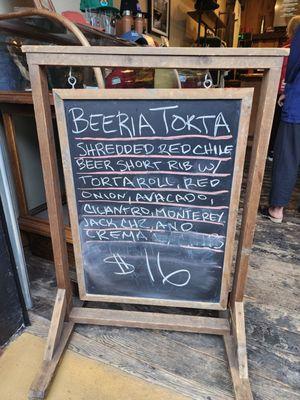 BEERIA TORTA
SHREDDED RED CHILE
BEER SHORT RIB W/
TORTA ROLL, RED
ONION, AVACADO,
CILANTRO, MONTEREY
JACK CHZ, AND
CREMA
$16